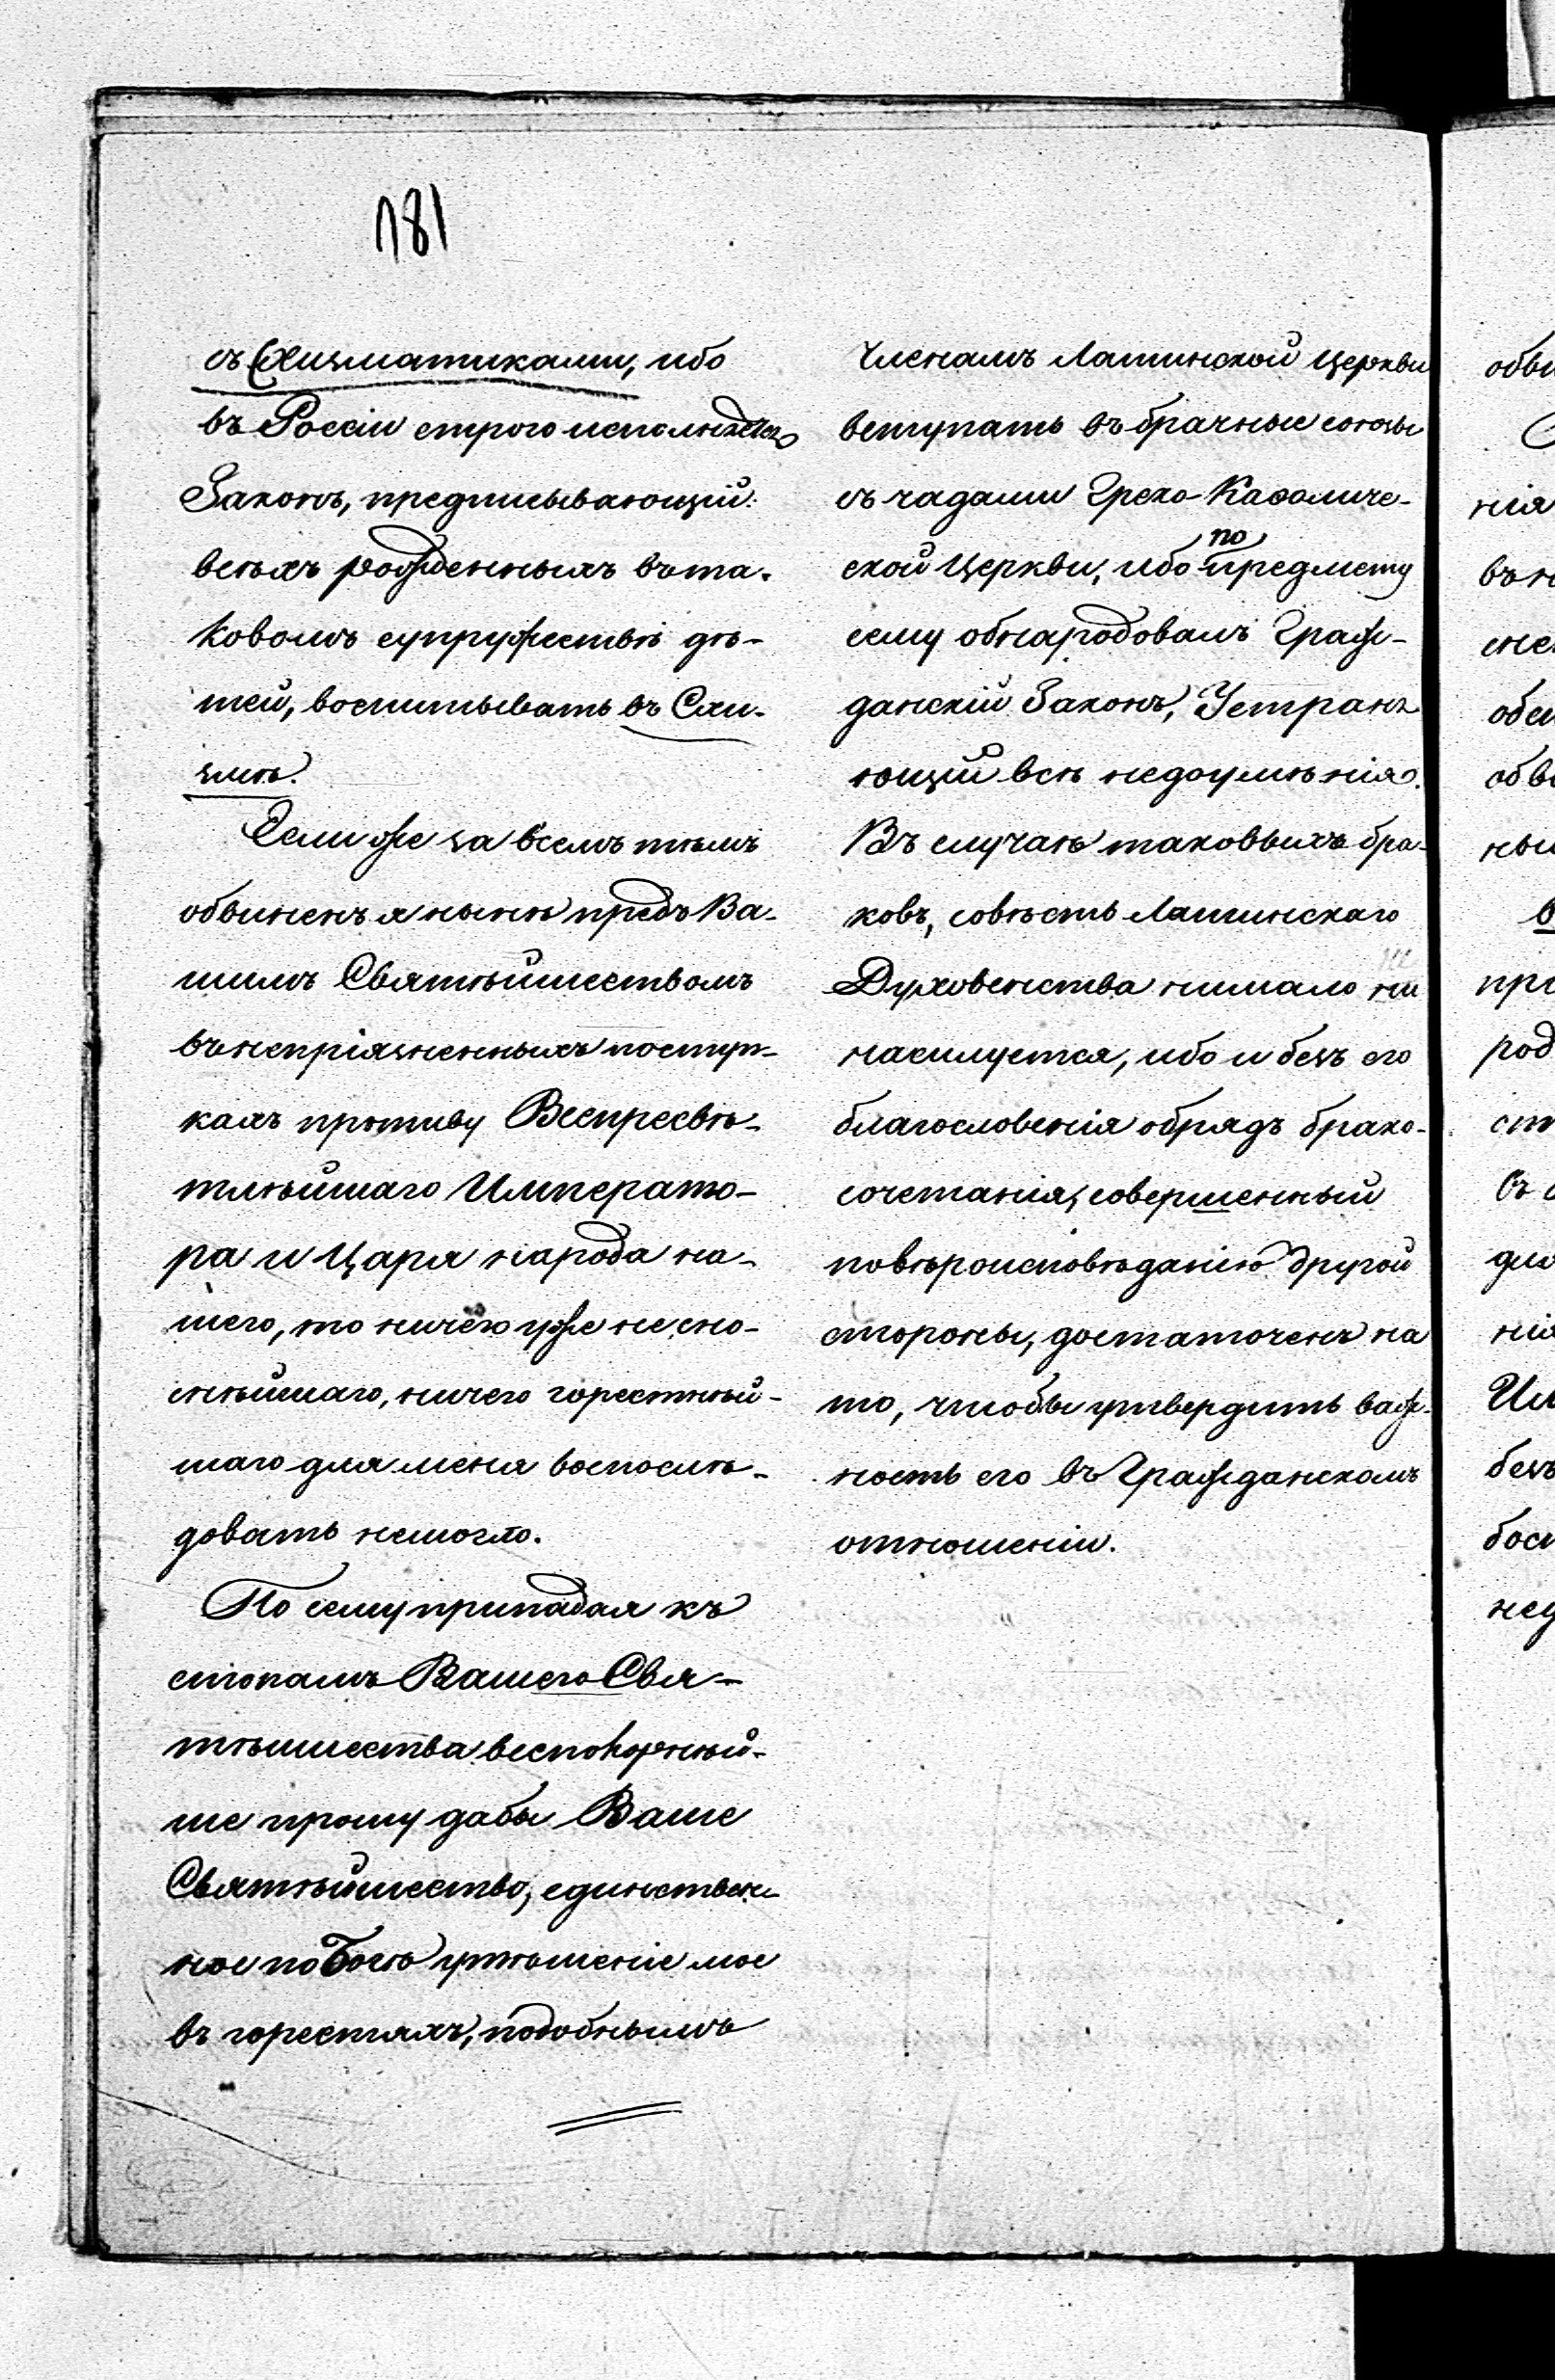 181
съ Схизматиками, ибо
въ Россіи строго исполняется
Законъ, предписывающій:
всѣхъ рожденныхъ въ та-
ковомъ супружествѣ дѣ-
тей, воспитывать въ Схи-
змѣ.
Если же за всемъ тѣмъ
обвиненъ я нынѣ предъ Ва-
шимъ Святѣйшествомъ
въ непріязненныхъ поступ-
кахъ противу Веспресвѣ-
тлѣйшаго Императо-
ра и Царя народа на-
шего, то ничего уже не сно-
снѣйшаго, ничего горестнѣй-
шаго для меня воспослѣ-
довать немогло.
По сему припадая къ
стопамъ Вашего Свя-
тѣишества всепокорнѣй-
ше прошу дабы Ваше
Святѣйшество, единствен-
ное по Богѣ утѣшеніе мое
въ горестяхъ, подобнымъ
Членамъ Латинской Церкви
вступать въ брачные союзы
съ чадами Греко-Каѳоличе-
ской Церкви, ибо по предмету
сему обнародованъ Граж-
данскій Законъ, Устраня-
ющій всѣ недоумѣнія.
Въ случаѣ таковыхъ бра-
ковъ, совѣсть Латинскаго
Духовенства нимало не
насилуется, ибо и безъ его
благословенія обрядъ брако-
сочетанія, совершенный
повѣроисповѣданію другой
стороны, достаточенъ на
то, чтобы утвердить важ-
ность его въ Гражданскомъ
отношеніи.